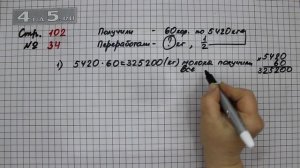 4 А 5
Стр. 102
№ 34
Купили - 60 кор. по 5420 кг
Переработали - ? кг, 1/2
1) 5420 · 60 = 325200 (кг) молока купили
все
× 5420
60
325200